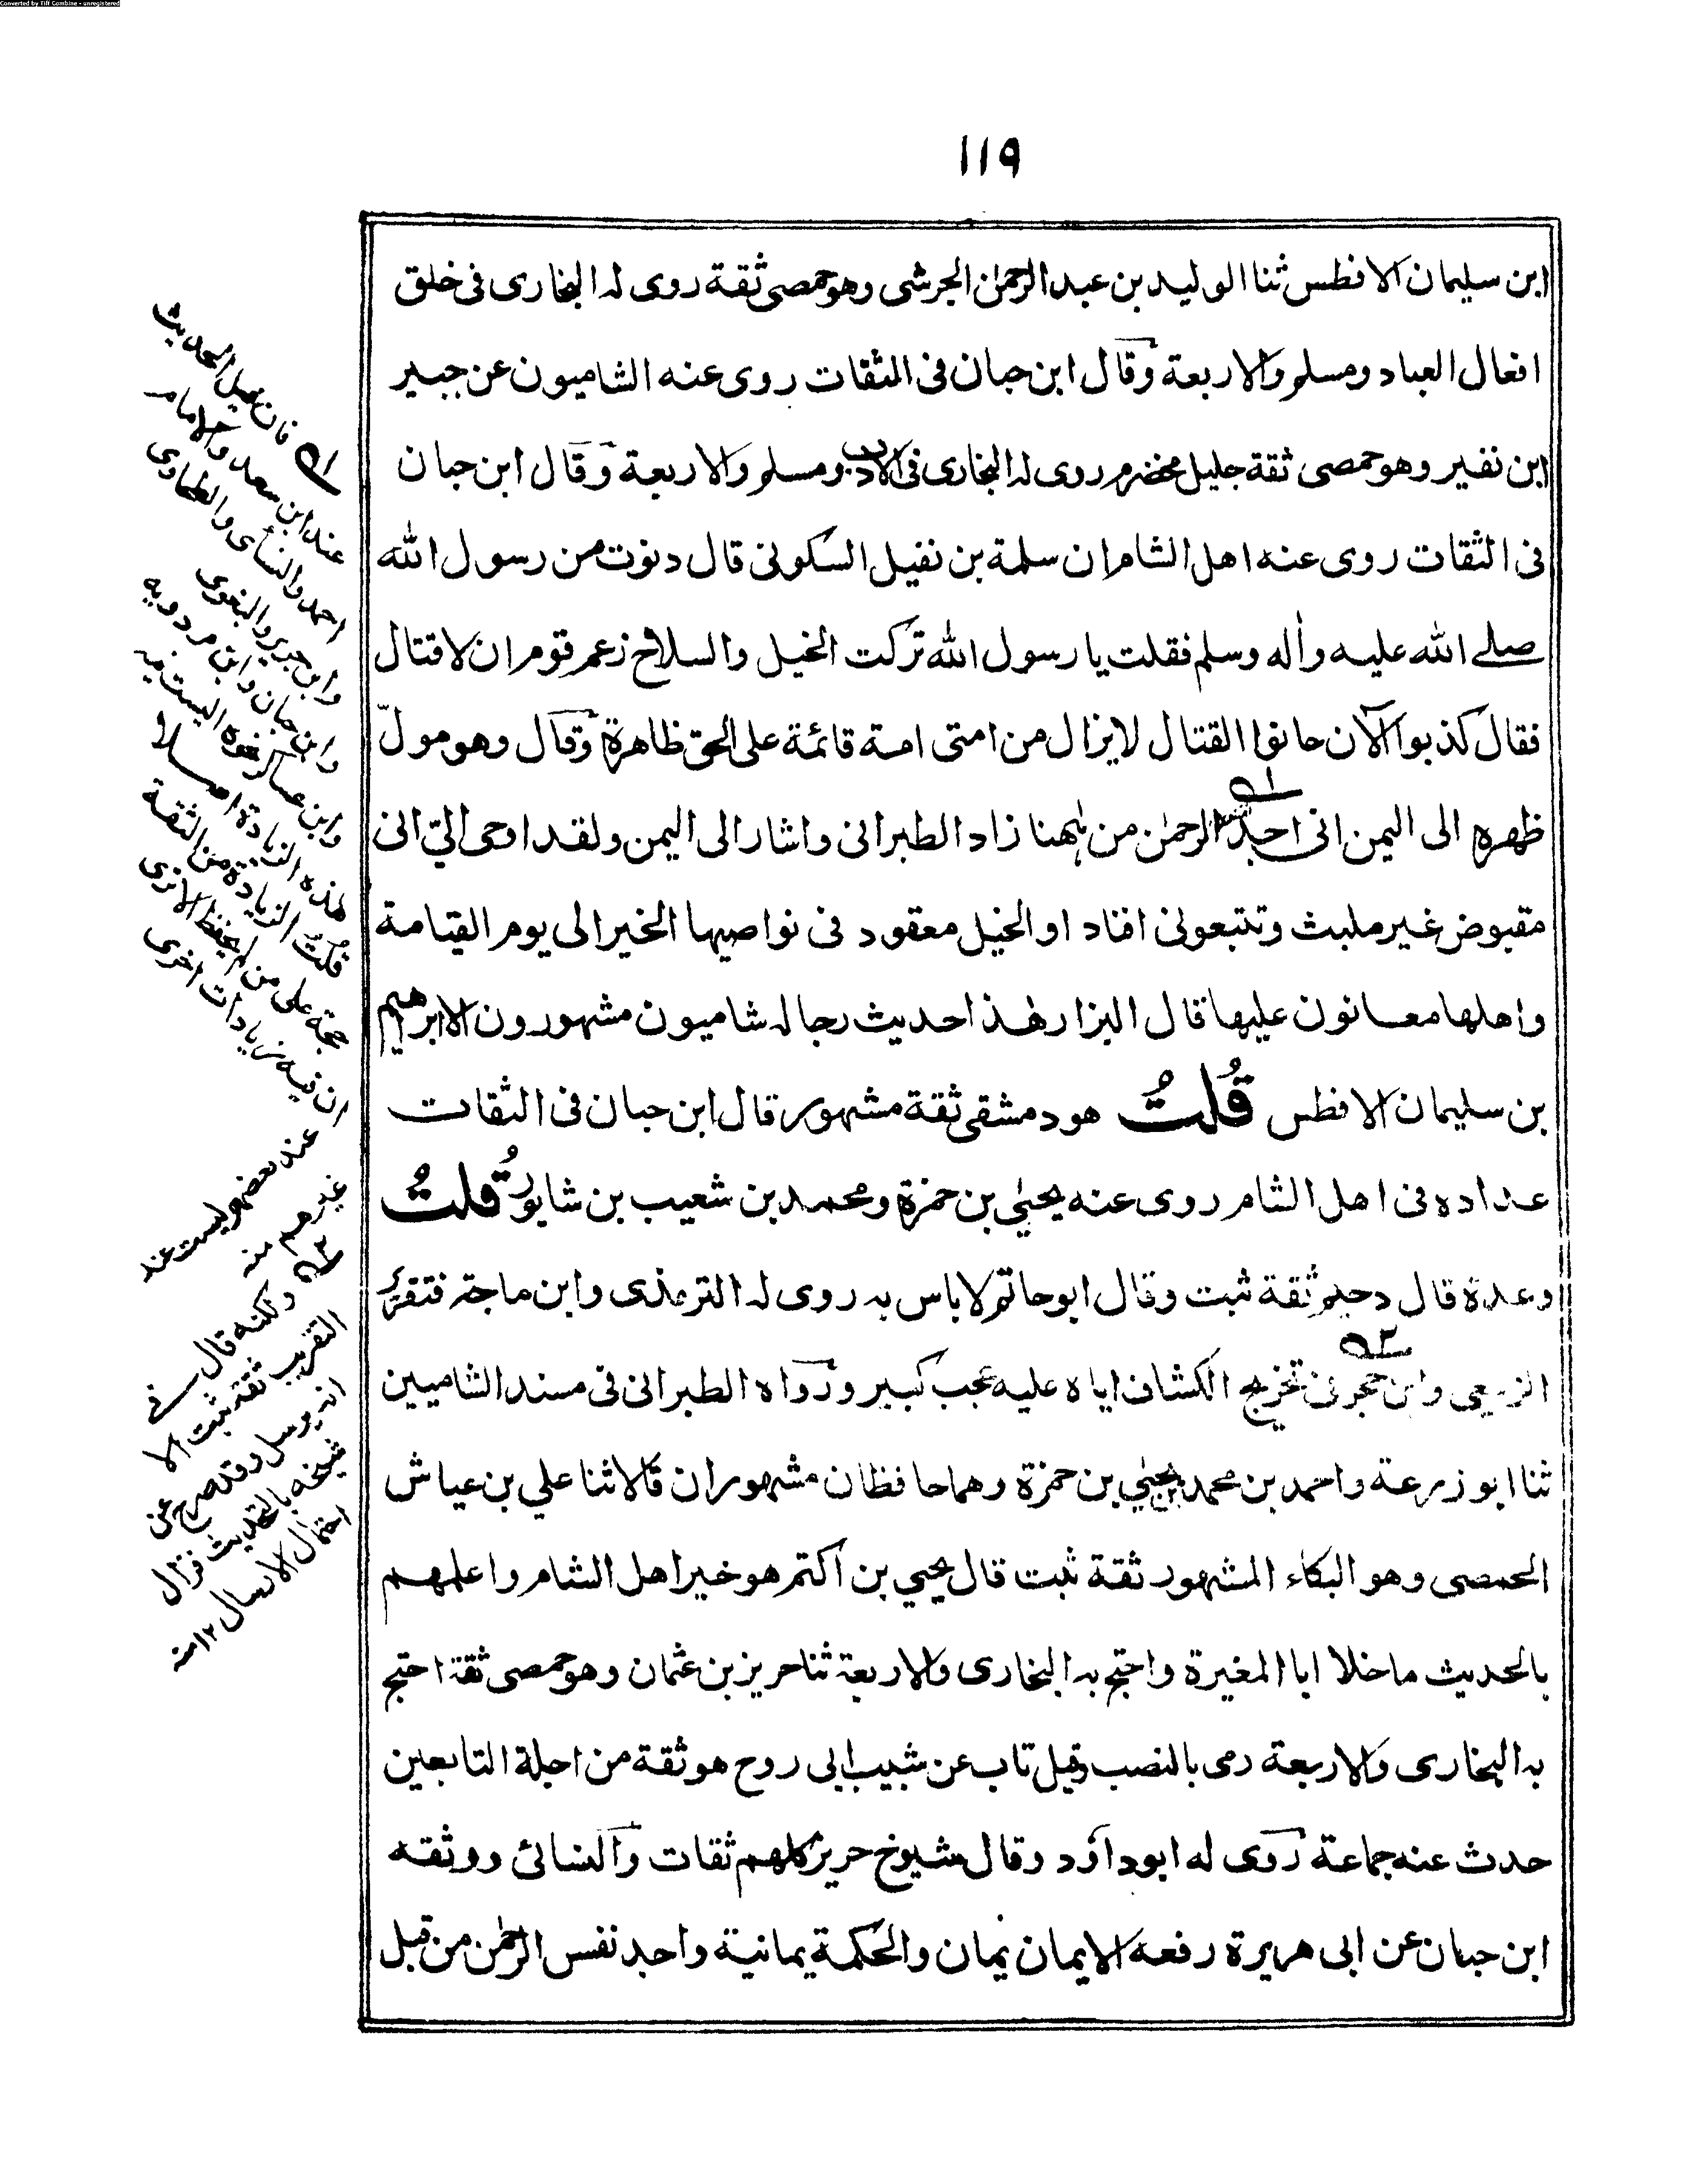 Converted by Tiff Combine - unregistered
١١٩
ابن سليمان الافطس ثنا الوليد بن عبد الرحمٰن الجرشى وهو حمصى ثقة روى له البخارى فى خلق
افعال العباد ومسلم والاربعة وقال ابن حبان فى الثقات روى عنه الشاميون عن جبير
ابن نفير وهو حمصى ثقة جليل مخضرم روى له البخارى فى الادب ومسلم والاربعة وقال ابن حبان
فى الثقات روى عنه اهل الشام ان سلمة بن نفيل السكونى قال دنوت من رسول الله
صلے الله عليه وأله وسلم فقلت يا رسول الله تركت الخيل والسلاح زعم قوم ان لا قتال
فقال كذبوا الآن حانوا القتال لا يزال من امتى امة قائمة على الحق ظاهرة وقال وهو مولّ
ظهره الى اليمن انى اجد الرحمٰن من ههنا زاد الطبرانى واشار الى اليمن ولقد اوحى الىّ انى
مقبوض غير ملبث وتتبعونى افناد او الخيل معقود فى نواصيها الخير الى يوم القيامة
واهلها معانون عليها قال البزار هٰذا حديث رجاله شاميون مشهورون الا ابراهيم
بن سليمان الافطس قُلتُ هو دمشقى ثقة مشهور قال ابن حبان فى الثقات
عداده فى اهل الشام روى عنه يحيٰي بن حمزة ومحمد بن شعيب بن شابور قُلتُ
وعدة قال دحيم ثقة ثبت وقال ابو حاتم لا باس به روى له الترمذى وابن ماجة فتفرد
الزيلعي وابن حجر فى تخريج الكشاف اياه عليه عجب كبير ورواه الطبرانى فى مسند الشاميين
ثنا ابو زرعة واحمد بن محمد بن يحيٰي بن حمزة وهما حافظان مشهوران قالا ثنا علي بن عياش
الحمصى وهو البكاء المشهور ثقة ثبت قال يحيي بن اكتم هو خير اهل الشام واعلمهم
بالحديث ما خلا ابا المغيرة واحتج به البخارى والاربعة ثنا حريز بن عثمان وهو حمصى ثقة احتج
به البخارى والاربعة رمى بالنصب وقيل تاب عن شبيب ابى روح هو ثقة من اجلة التابعين
حدث عنه جماعة روى له ابوداؤد وقال شيوخ حريز كلهم ثقات والنسائى ووثقه
ابن حبان عن ابى هريرة رفعه الايمان يمان والحكمة يمانية واجد نفس الرحمٰن من قبل
١ه فان قيل الحديث
عند ابن سعد والامام
احمد والنسأى والطحاوى
وابن جرير والبغوى
وابن حبان وابن مردويه
وابن عساكر نحوه اليست فيه
هذه الزيادة اصلا
قُلتُ الزيادة من الثقة
حجة على من لم يحفظ الا ترى
ان فيه زيادات اخرى
عند بعضهم وليست عند
غيرهم منه
٢ه ولكنه قال فى
التقريب ثقة ثبت الا
انه يرسل وقد صرح عن
شيخه بالتحديث فزال
احتمال الارسال ١٢ منه